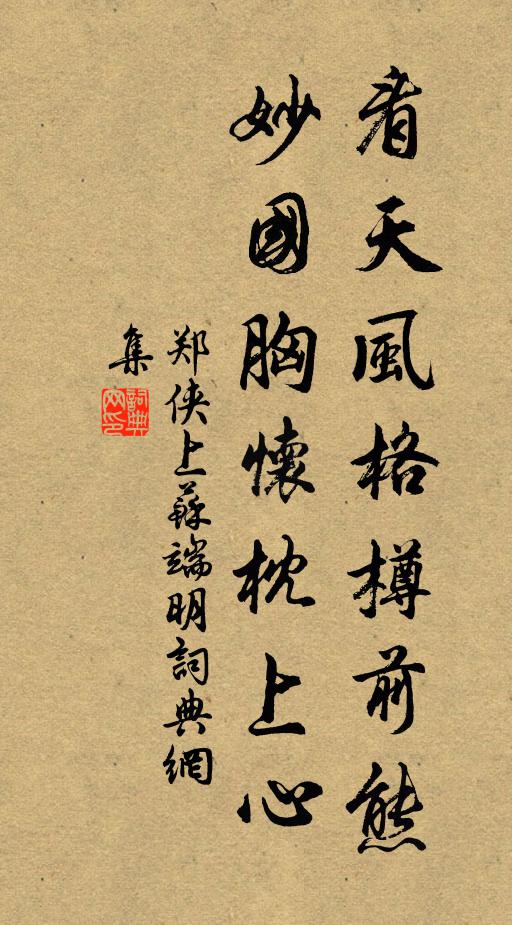 看天風格樽前熊
妙國胸懷枕上心
郑侠上蘇端明詞典網
集
詞典网印